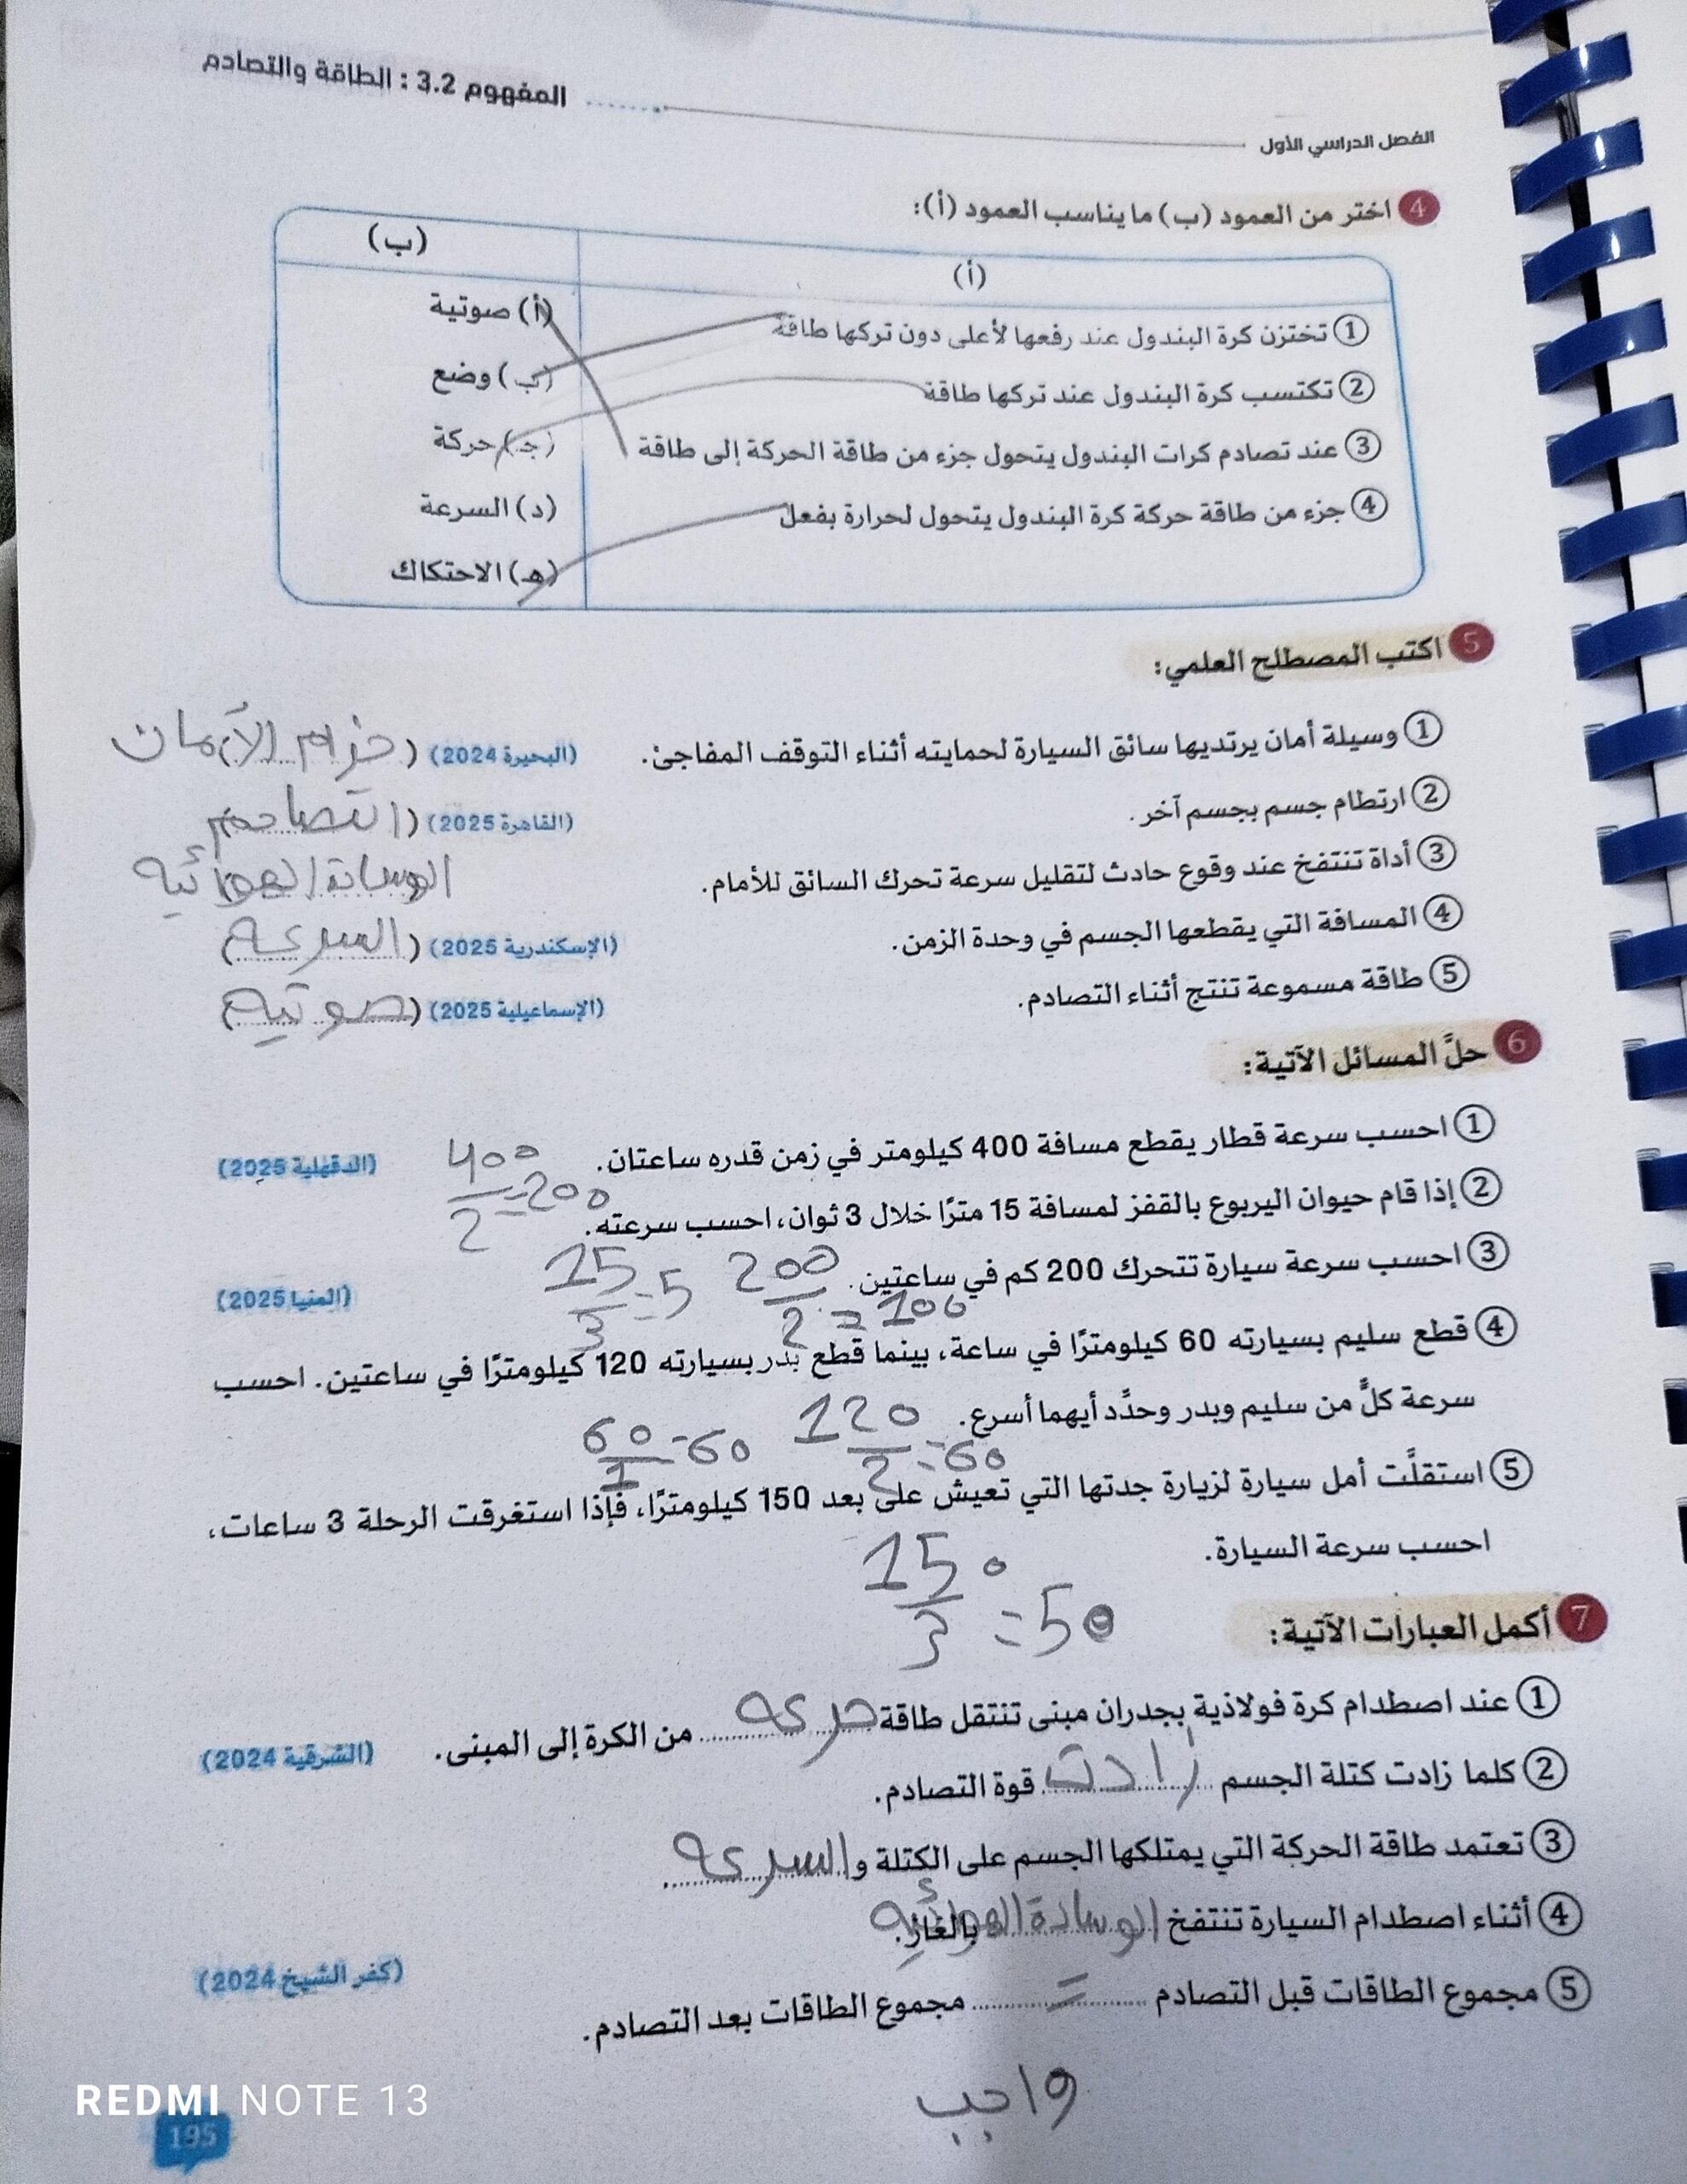 المفهوم 3.2 : الطاقة والتصادم
الفصل الدراسي الأول
4 اختر من العمود (ب) ما يناسب العمود (أ):
(أ) (ب)
① تختزن كرة البندول عند رفعها لأعلى دون تركها طاقة (أ) صوتية
② تكتسب كرة البندول عند تركها طاقة (ب) وضع
③ عند تصادم كرات البندول يتحول جزء من طاقة الحركة إلى طاقة (جـ) حركة
④ جزء من طاقة حركة كرة البندول يتحول لحرارة بفعل (د) السرعة
(هـ) الاحتكاك
5 اكتب المصطلح العلمي:
① وسيلة أمان يرتديها سائق السيارة لحمايته أثناء التوقف المفاجئ. (البحيرة 2024) (حزام الأمان
② ارتطام جسم بجسم آخر. (القاهرة 2025) (التصادم
③ أداة تنتفخ عند وقوع حادث لتقليل سرعة تحرك السائق للأمام. الوسادة الهوائيه
④ المسافة التي يقطعها الجسم في وحدة الزمن. (الإسكندرية 2025) (السرعه)
⑤ طاقة مسموعة تنتج أثناء التصادم. (الإسماعيلية 2025) (صوتيه)
6 حلَّ المسائل الآتية:
① احسب سرعة قطار يقطع مسافة 400 كيلومتر في زمن قدره ساعتان. (الدقهلية 2025)
400/2 = 200
② إذا قام حيوان اليربوع بالقفز لمسافة 15 مترًا خلال 3 ثوان، احسب سرعته.
15/3 = 5
③ احسب سرعة سيارة تتحرك 200 كم في ساعتين. (المنيا 2025)
200/2 = 100
④ قطع سليم بسيارته 60 كيلومترًا في ساعة، بينما قطع بدر بسيارته 120 كيلومترًا في ساعتين. احسب
سرعة كلٍّ من سليم وبدر وحدِّد أيهما أسرع.
120/2 = 60 60/1 = 60
⑤ استقلَّت أمل سيارة لزيارة جدتها التي تعيش على بعد 150 كيلومترًا، فإذا استغرقت الرحلة 3 ساعات،
احسب سرعة السيارة.
150/3 = 50
7 أكمل العبارات الآتية:
① عند اصطدام كرة فولاذية بجدران مبنى تنتقل طاقة حركه من الكرة إلى المبنى. (الشرقية 2024)
② كلما زادت كتلة الجسم زادت قوة التصادم.
③ تعتمد طاقة الحركة التي يمتلكها الجسم على الكتلة و السرعه
④ أثناء اصطدام السيارة تنتفخ الوسادة الهوائيه بالغاز.
⑤ مجموع الطاقات قبل التصادم = مجموع الطاقات بعد التصادم. (كفر الشيخ 2024)
واجب
REDMI NOTE 13
195